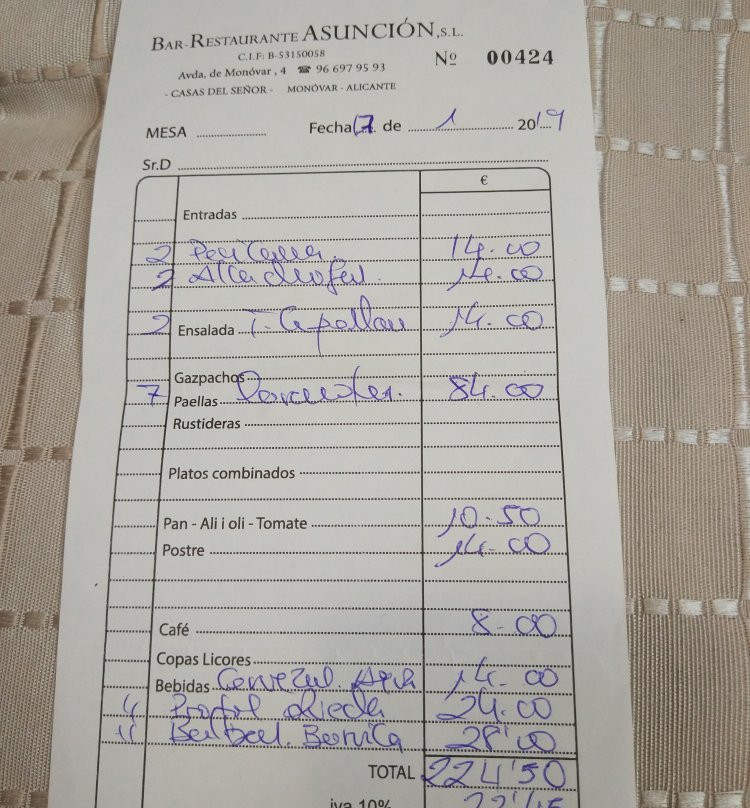 BAR-RESTAURANTE ASUNCIÓN, S.L.
C.I.F: B-53150058
Nº 00424
Avda, de Monóvar , 4 ☎ 96 697 95 93
- CASAS DEL SEÑOR - MONÓVAR - ALICANTE
MESA Fecha 7 de 1 2019
Sr.D
€
Entradas
2 14.00
2 14.00
2 Ensalada T. Capellan 14.00
Gazpachos
7 Paellas 84.00
Rustideras
Platos combinados
Pan - Ali i oli - Tomate 10.50
Postre 14.00
Café 8-00
Copas Licores
Bebidas 14-00
24.00
28'00
TOTAL 224'50
iva 10% 22'45